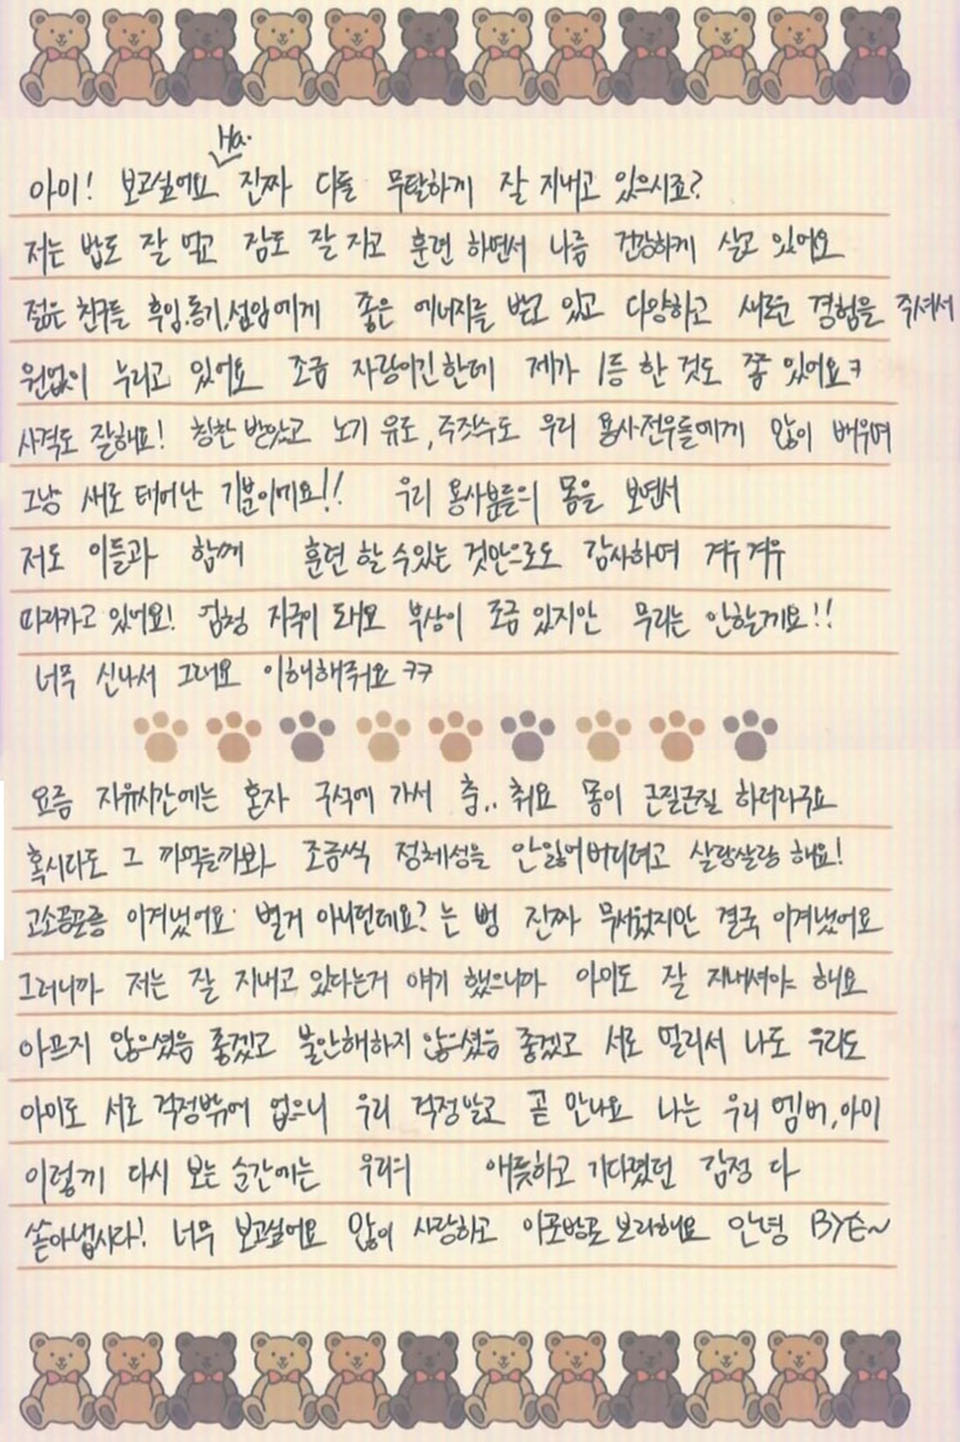 Ha.
아미! 보고싶어요 진짜 다들 무탈하게 잘 지내고 있으시죠?
저는 밥도 잘 먹고 잠도 잘 자고 훈련 하면서 나름 건강하게 살고 있어요
젊은 친구들 후임,동기,선임에게 좋은 에너지를 받고 있고 다양하고 새로운 경험을 주셔서
원없이 누리고 있어요 조금 자랑이긴한데 제가 1등 한 것도 쫌 있어요ㅋ
사격도 잘해요! 칭찬 받았고 노기 유도,주짓수도 우리 용사·전우들에게 많이 배우며
그냥 새로 태어난 기분이에요!! 우리 용사분들의 몸을 보면서
저도 이들과 함께 훈련 할 수있는 것만으로도 감사하며 겨우겨우
따라가고 있어요! 엄청 자극이 돼요 부상이 조금 있지만 무리는 안할게요!!
너무 신나서 그래요 이해해줘요 ㅋㅋ
요즘 자유시간에는 혼자 구석에 가서 춤.. 춰요 몸이 근질근질 하더라구요
혹시라도 그 까먹을까봐 조금씩 정체성을 안잃어버리려고 살랑살랑 해요!
고소공포증 이겨냈어요 별거 아니던데요? 는 뻥 진짜 무서웠지만 결국 이겨냈어요
그러니까 저는 잘 지내고 있다는거 얘기 했으니까 아미도 잘 지내셔야 해요
아프지 않으셨음 좋겠고 불안해하지 않으셨음 좋겠고 서로 멀리서 나도 우리도
아미도 서로 걱정밖에 없으니 우리 걱정말고 곧 만나요 나는 우리 멤버,아미
이렇게 다시 보는 순간에는 우리의 애틋하고 기다렸던 감정 다
쏟아냅시다! 너무 보고싶어요 많이 사랑하고 이꼬방고 보라해요 안녕 BY슨~